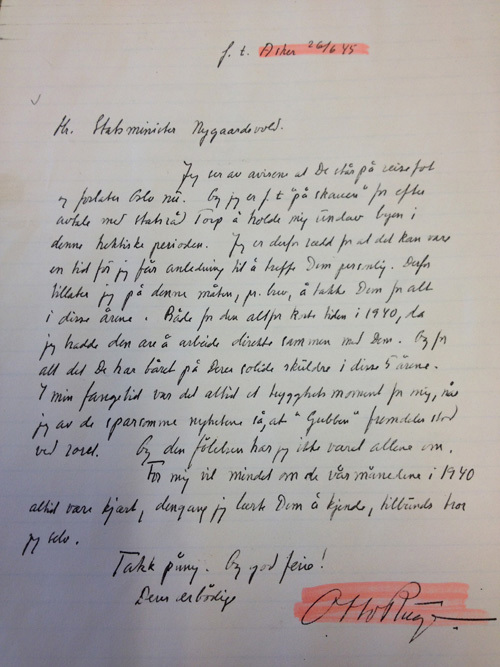 f. t. Asker 26/6 45
Hr. Statsminister Nygaardsvold.
Jeg ser av avisene at De står på reisefot
og forlater Oslo nu. Og jeg er f. t "på skauen" for efter
avtale med statsråd Torp å holde mig undav byen i
denne hektiske perioden. Jeg er derfor rædd for at det kan vare
en tid før jeg får anledning til å treffe Dem personlig. Derfor
tillater jeg på denne måten, pr. brev, å takke Dem for alt
i disse årene. Både for den altfor korte tiden i 1940, da
jeg hadde den ære å arbeide direkte sammen med Dem. Og for
alt det De har båret på Deres solide skuldre i disse 5 årene.
I min fangetid var det altid et trygghets moment for mig, når
jeg av de sparsomme nyhetene så, at "Gubben" fremdeles stod
ved roret. Og den følelsen har jeg ikke været allene om.
For mig vil mindet om de vårmånedene i 1940
altid være kjært, dengang jeg lærte Dem å kjende, tillands tror
jeg selv.
Takk påny. Og god ferie!
Deres ærbødige
Otto Ruge